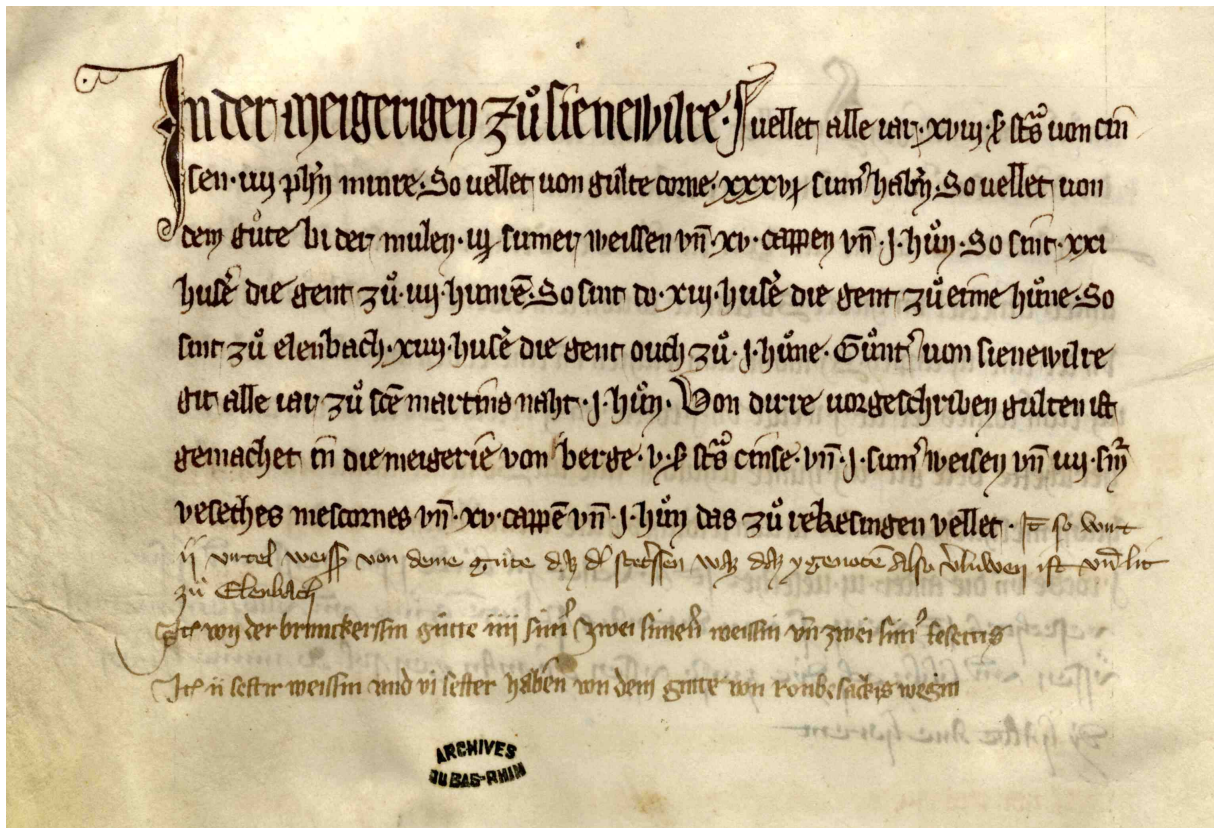 In der meigerigen zů sienewilre. So vellet alle iar. xviij. lb strͦs von cin
sen. iiij ph'n minre. So vellet von gulte corne. xxxvj sum' hab'n. So vellet von
dem gůte bi der mulen. iij. sumer weissen vn̄ .xv. cappen vn̄ .j. hůn. So sint .xxi
huser die gent zů .iiij. hunrē. So sint do .xiij. huser die gent zů eime hůne. So
sint zů elenbach. xvij. huser die gent ouch zů .j. hůne. Gůnt' von sienewilre
git alle iar zů scē martins naht .j. hůn. Von dirre vorgeschriben gulten ist
gemachet in die meigerie von berge .v. lb strͦs cinse. vn̄ .j. sum' weisen vn̄ iiij. sm'
veseches mescornes vn̄ .xv. cappē vn̄ .j. hůn das zů rekesingen vellet. It so wirt
ij virtel weiss von deme gůte dz d' stetzssen waz daz ygenotē also v'luwen ist vn̄ lit
zů Elenbach
It von der brunckerssin gutte iiij sim' zwei simeri weissin vn̄ zwei sim' feseccis
It ii sester weissin und vi sester haben von dem gutte von roubesackis wegin
ARCHIVES
DU BAS-RHIN